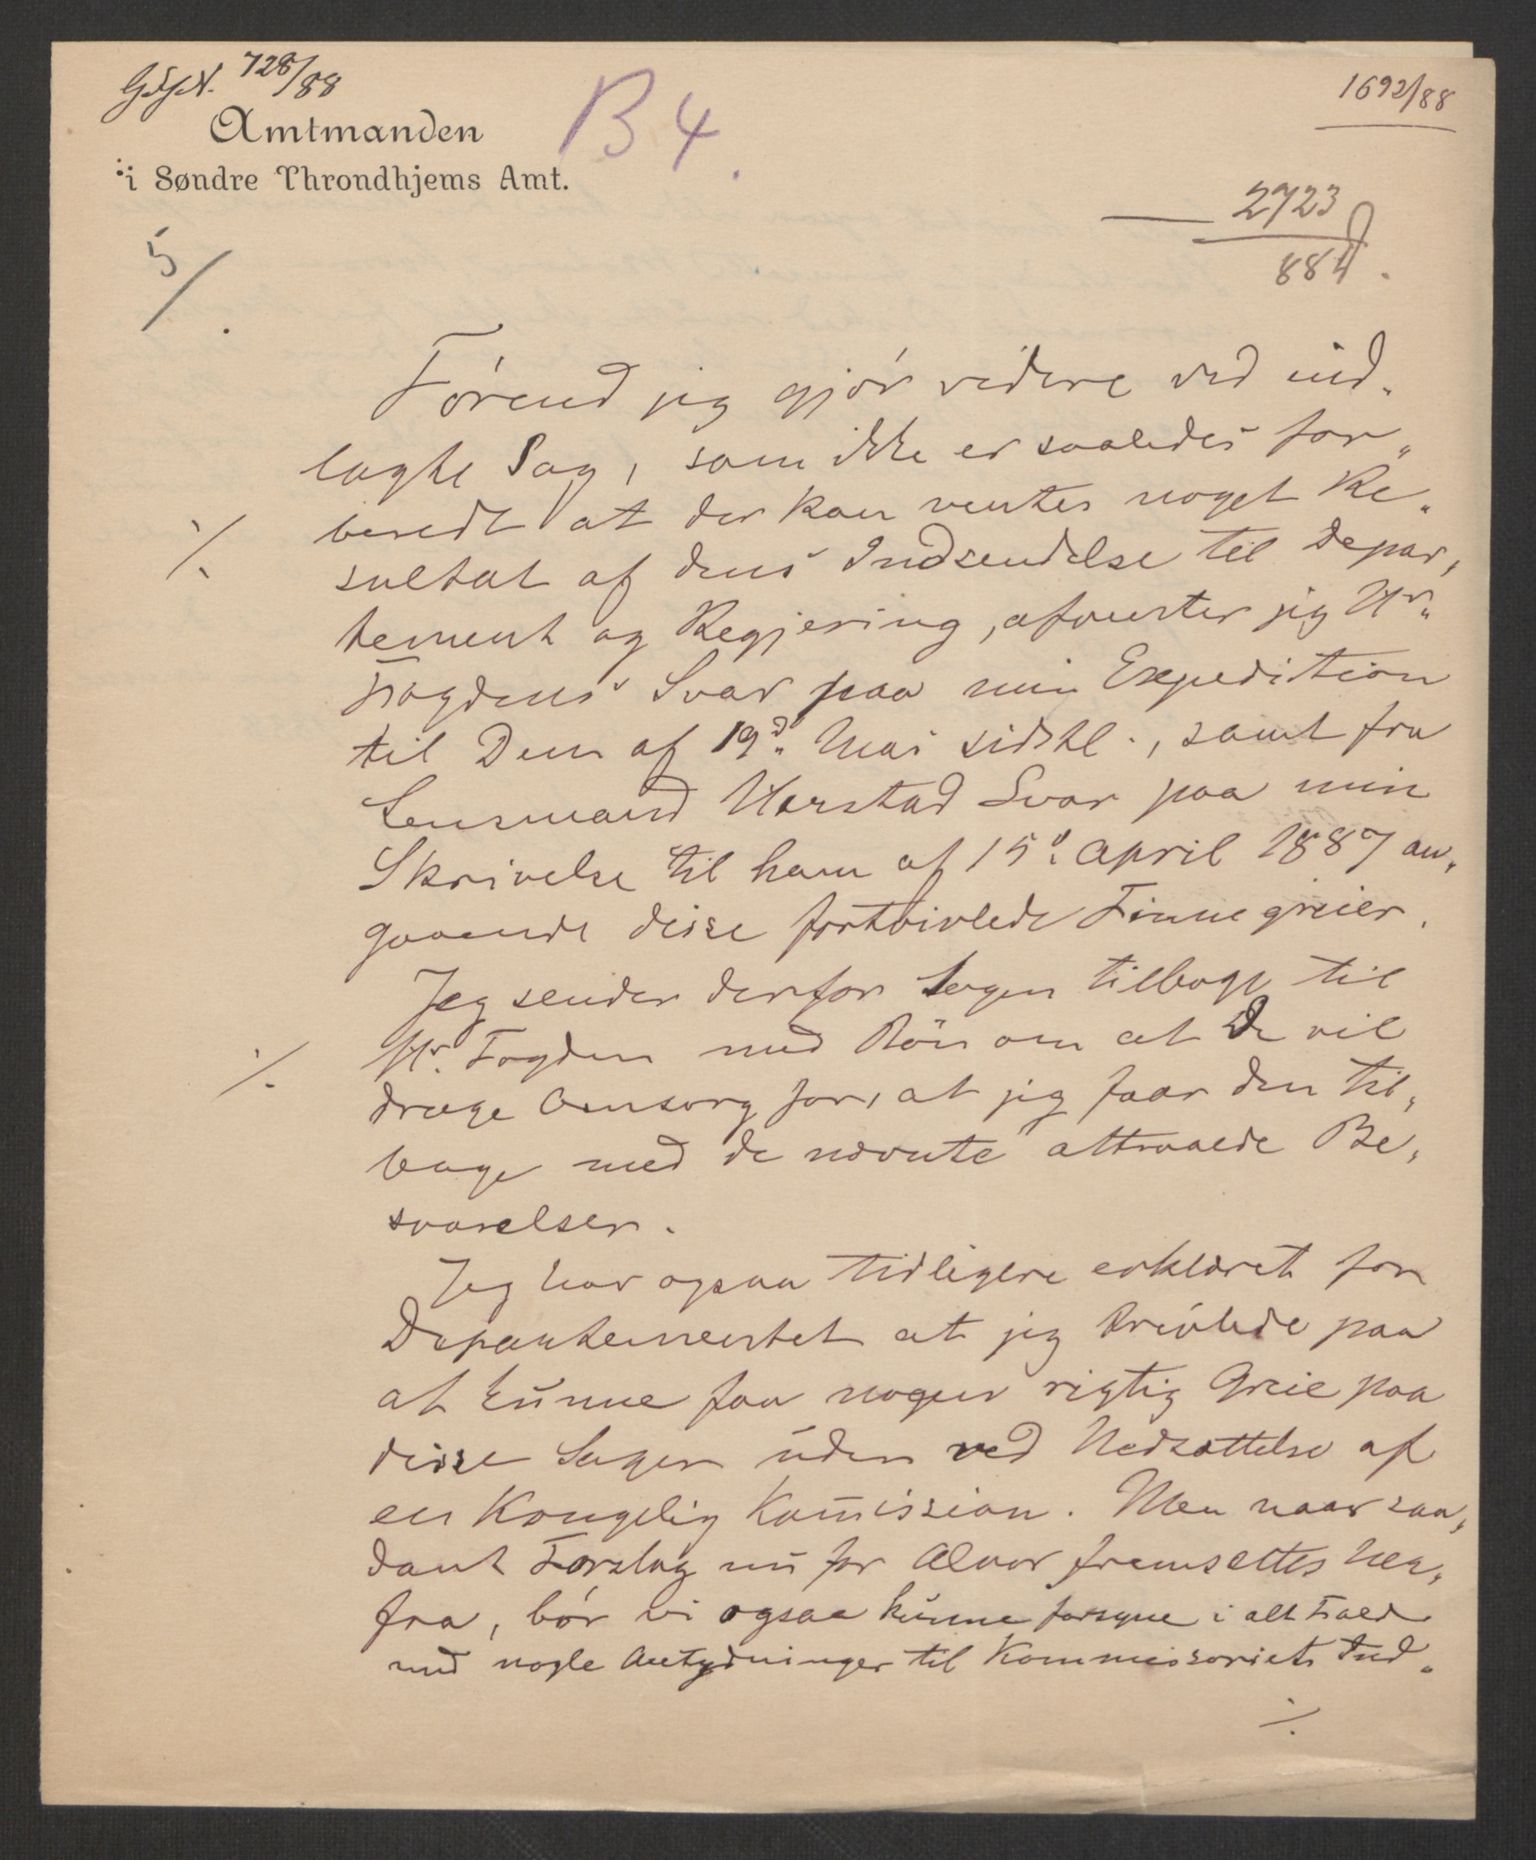 728/88
1692/88
Amtmanden
i Søndre Throndhjems Amt.
B 4.
2723
884
5/.
Førend jeg gjør videre ved ind„
lagte Sag, som ikke er saaledes for„
beredt at der kan ventes noget Re„
sultat af dens Indsendelse til Depar„
tement og Regjering, afventer jeg Hr.
Fogdens Svar paa min Expedition
til Dem af 19d. Mai sidstl., samt fra
Lensmand Harstad Svar paa min
Skrivelse til ham af 15d. April 1887 an„
gaaende disse fortvivlede Finnegreier.
Jeg sender derfor Sagen tilbage til
Hr. Fogden med Bøn om at De vil
drage Omsorg for, at jeg faar den til„
bage med de nævnte attraaede Be„
svarelser.
Jeg har ogsaa tidligere erklæret for
Departementet at jeg tvivlede paa
at kunne faa nogen rigtig Greie paa
disse Sager uden ved Nedsættelse af
en Kongelig Komission. Men naar saa„
dant Forslag nu for Alvor fremsættes her„
fra, bør vi ogsaa kunne forsyne i alt Fald
med nogle Antydninger til Kommissoriets Ind„
./.